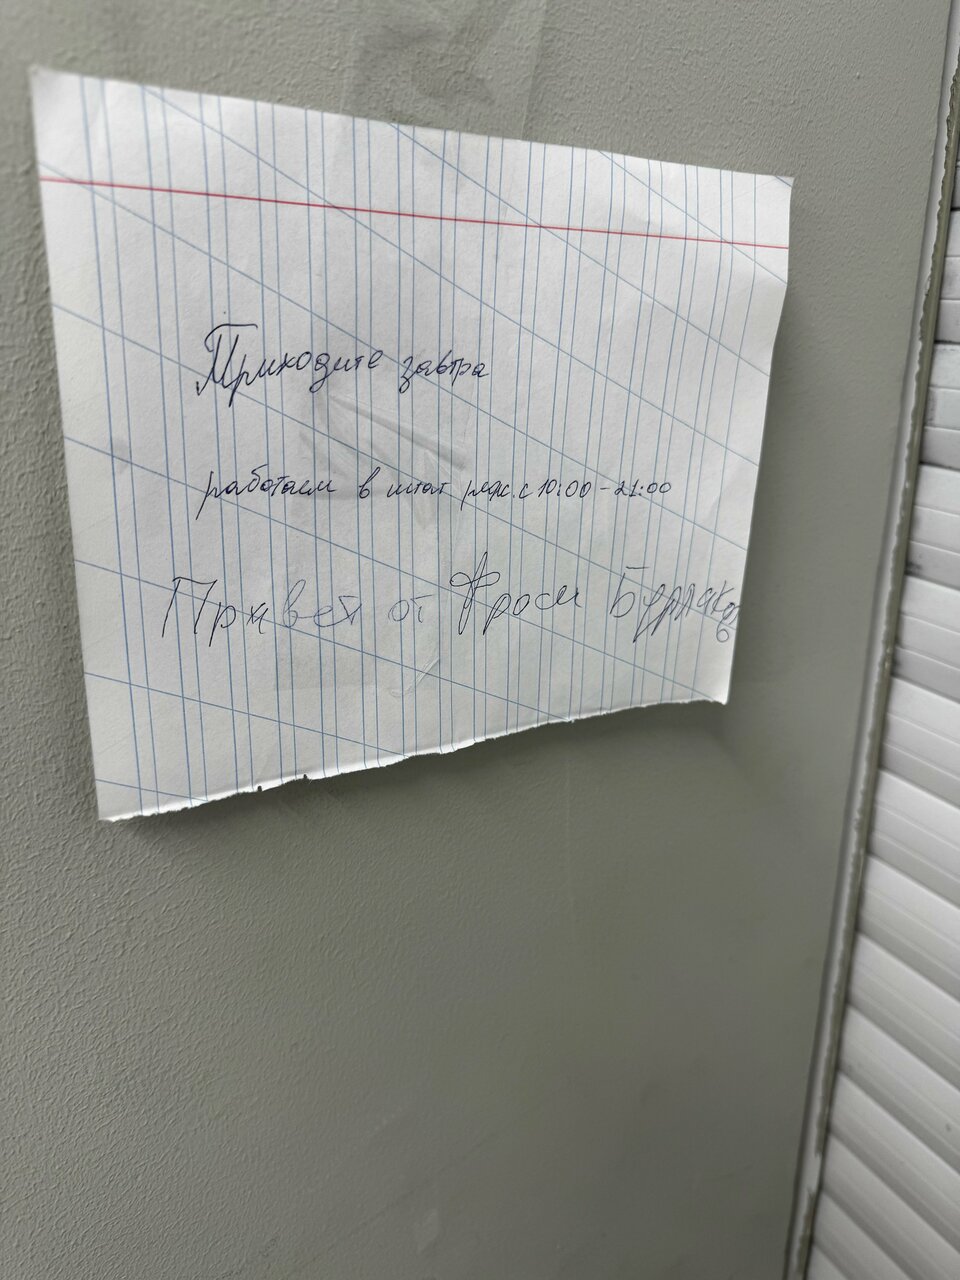 Приходите завтра
работаем в штат реж. с 10:00-21:00
Привет от Фроси Бурлаковой